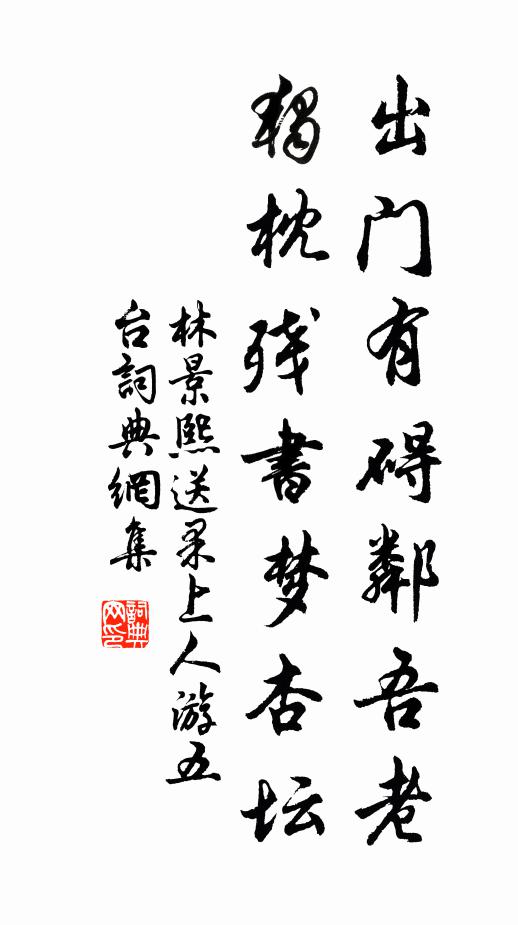 出门有碍鄰吾老
獨枕残書梦杏坛
林景熙送果上人游五
台詞典網集
詞典
网印